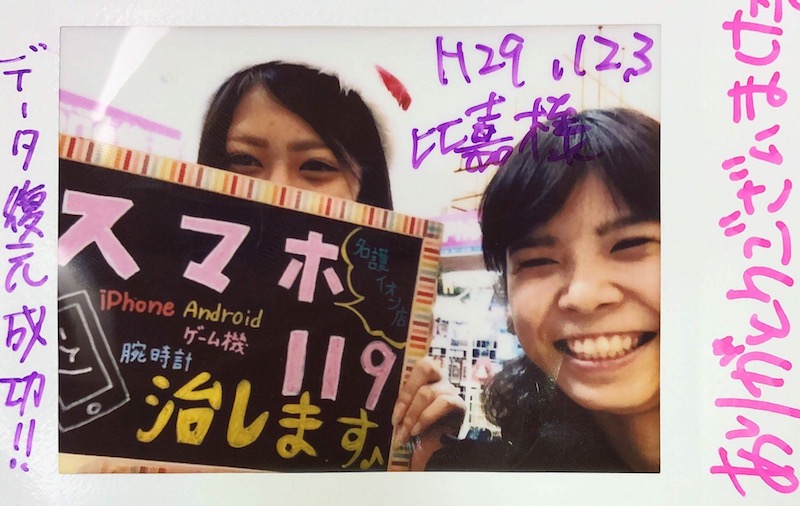 データ復元成功!!
H29.12.3
比嘉様
スマホ
119
名護
イオン店
iPhone Android
ゲーム機
腕時計
治します
ありがとうございました